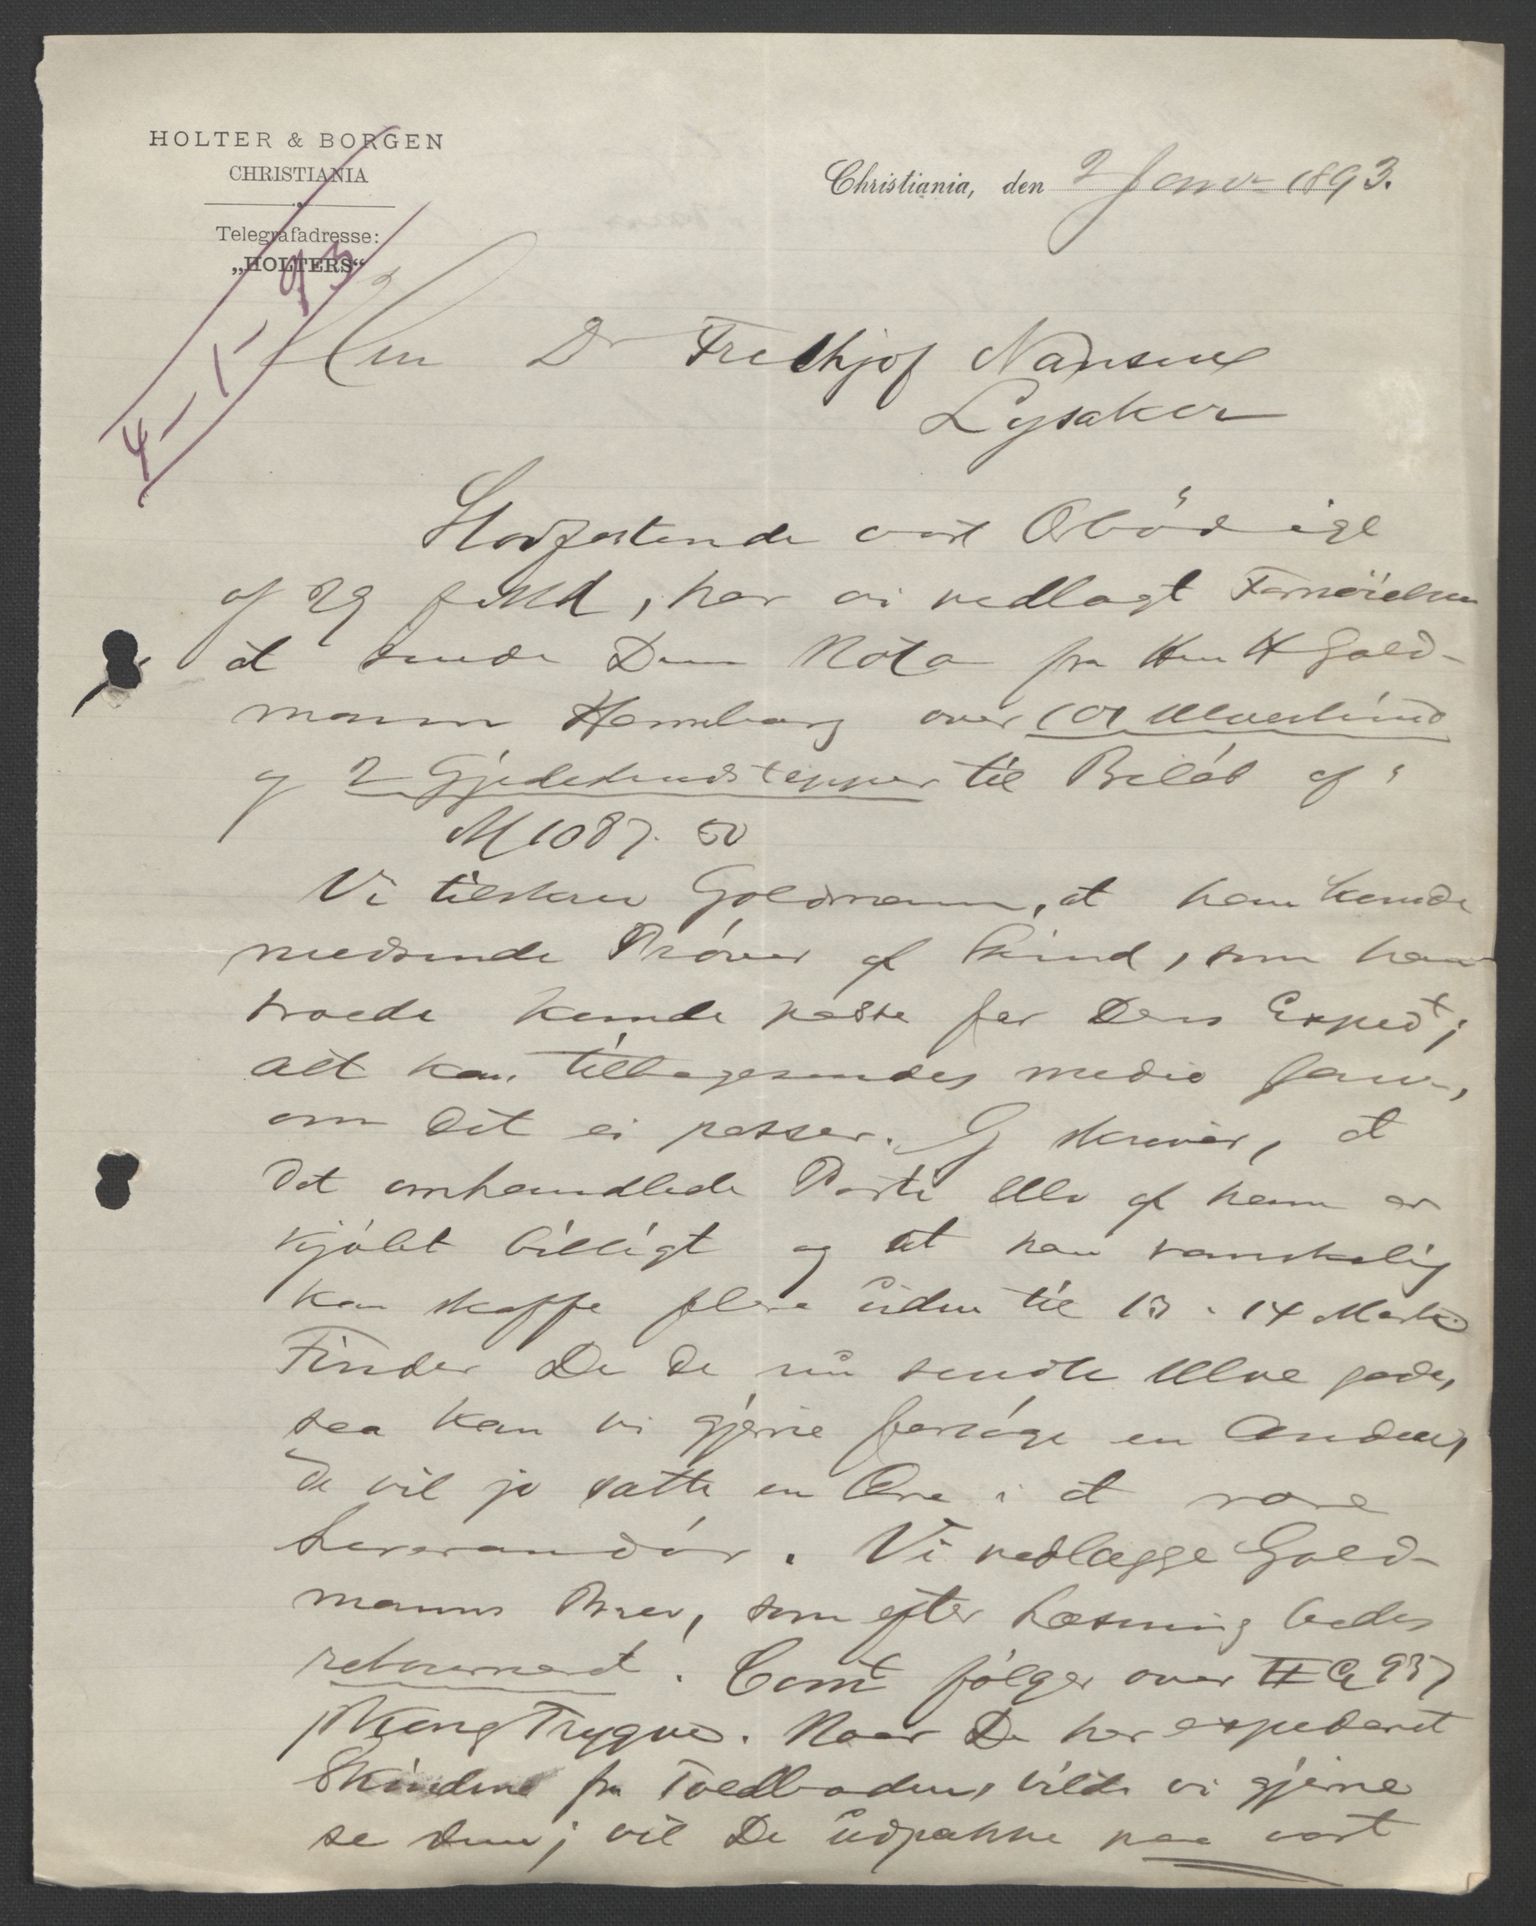 HOLTER & BORGEN
CHRISTIANIA
Telegrafadresse:
„HOLTERS“
4-1-93
Christiania, den 2 Janr 1893.
Herr Dr Fredhjof Nansen
Lysaker
Stadfæstende vort Ærbödige
af 29 f Md, har vi vedlagt Fornöielsen
at sende Dem Nota fra Herr H Gold-
mann Hamburg over 101 Ulveskind
og 2 Gjedeskindstepper til Belöb af
M 1087. 50
Vi tilskrev Goldmann, at han kunde
medsende Prøver af Skind, som han
troede kunde passe for Deres Expedt;
alt kan tilbagesendes medio Janr,
om det ei passer. G skriver, at
det omhandlede Parti Ulv af ham er
kjöbt billigt og at han vanskelig
kan skaffe flere uden til 13 - 14 Mark.
Finder De de nu sendte Ulve gode,
saa kan vi gjerne forsöge en Anden,
de vil jo sætte en Ære i at være
Leverandör. Vi vedlægge Gold-
manns Brev, som efter Læsning bedes
retourneret. Cont følger over HG 937
p Kong Trygve. Naar De har expederet
Skindene fra Toldboden, vilde vi gjerne
se dem; vil De udpakke paa vort